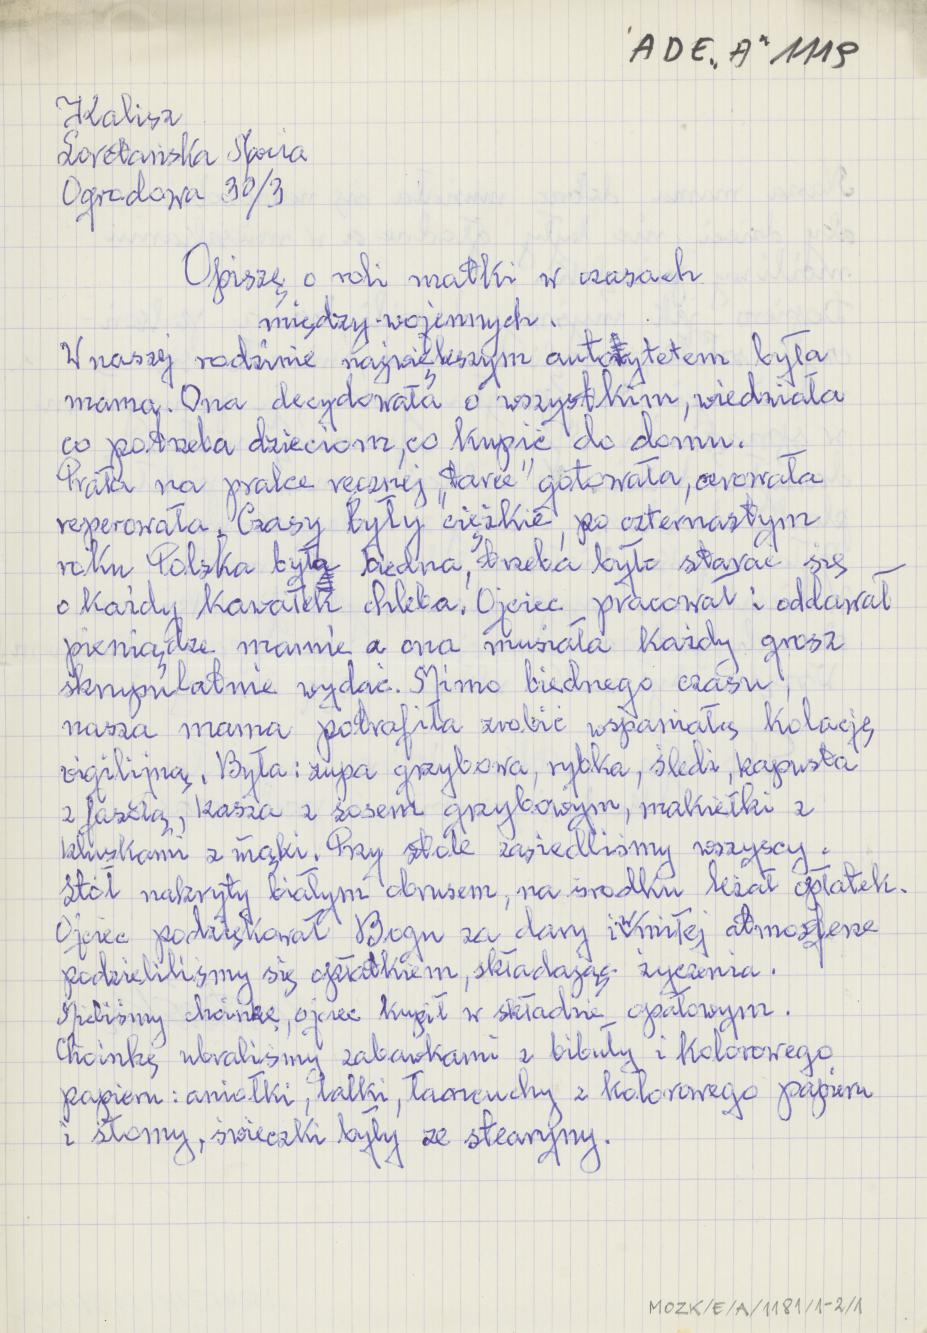 ADE„A" 1119
Kalisz
Loretańska Maria
Ogrodowa 30/3
Opiszę o roli matki w czasach
między-wojennych.
W naszej rodzinie największym autorytetem była
mama. Ona decydowała o wszystkim, wiedziała
co potrzeba dzieciom, co kupić do domu.
Prała na pralce ręcznej „tarce" gotowała, cerowała
reperowała. Czasy były ciężkie, po czternastym
roku Polska była biedna, trzeba było starać się
o każdy kawałek chleba. Ojciec pracował i oddawał
pieniądze mamie a ona musiała każdy grosz
skrupulatnie wydać. Mimo biednego czasu,
nasza mama potrafiła zrobić wspaniałą kolację
wigilijną. Była: zupa grzybowa, rybka, śledź, kapusta
z fasolą, kasza z sosem grzybowym, makiełki z
kluskami z mąki. Przy stole zasiedliśmy wszyscy.
Stół nakryty białym obrusem, na środku leżał opłatek.
Ojciec podziękował Bogu za dary i w miłej atmosferze
podzieliliśmy się opłatkiem, składając życzenia.
Mieliśmy choinkę, ojciec kupił w składzie opałowym.
Choinkę ubraliśmy zabawkami z bibuły i kolorowego
papieru: aniołki, lalki, łańcuchy z kolorowego papieru
i słomy, świeczki były ze stearyny.
MOZK/E/A/1181/1-2/1